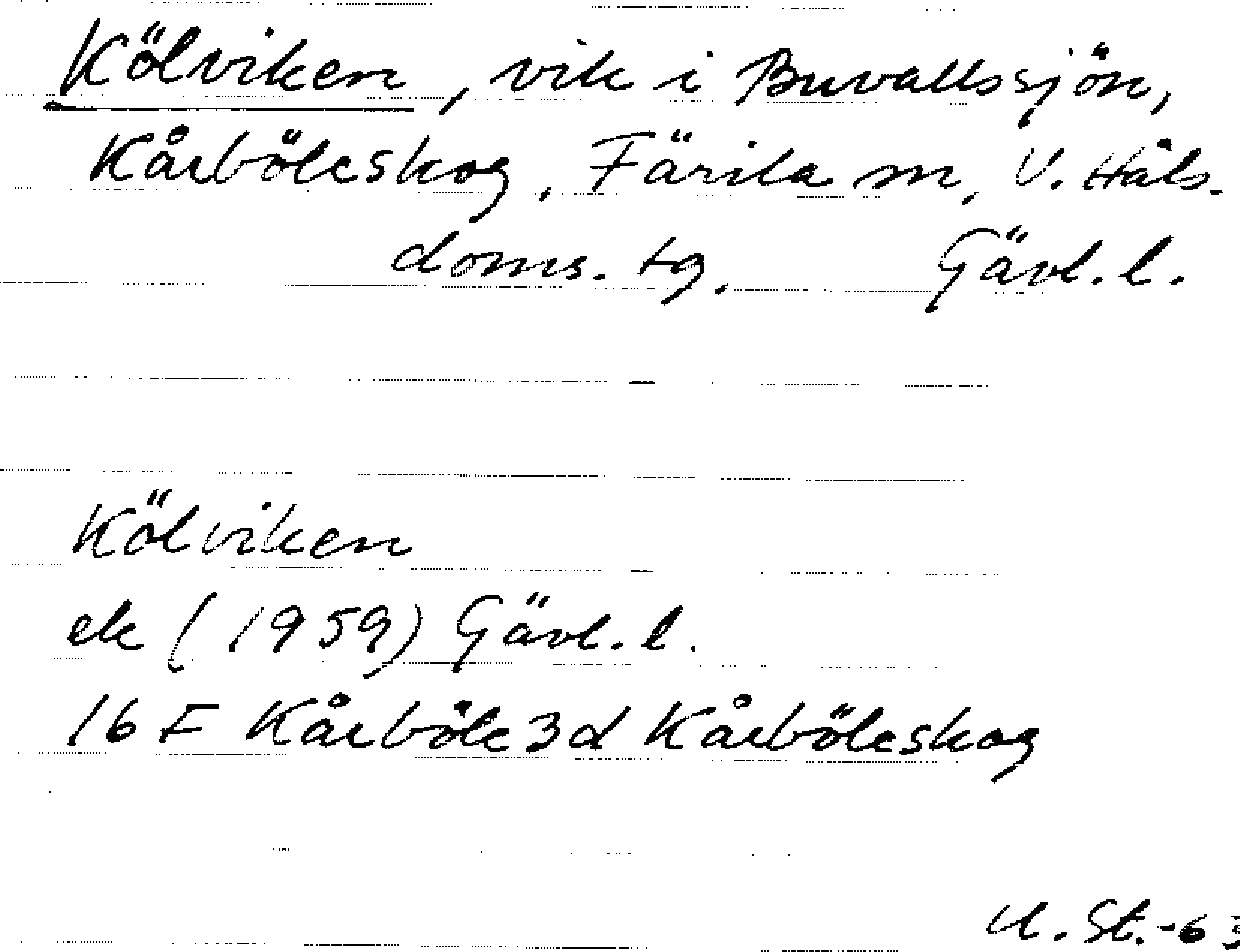 Kölviken, vik i Buvallssjön,
Kårböleskog, Färila sn, V. Häls.
doms. tg. Gävl. l.
Kölviken
ek (1959) Gävl. l.
16 F Kårböle 3d Kårböleskog
U. St. -63